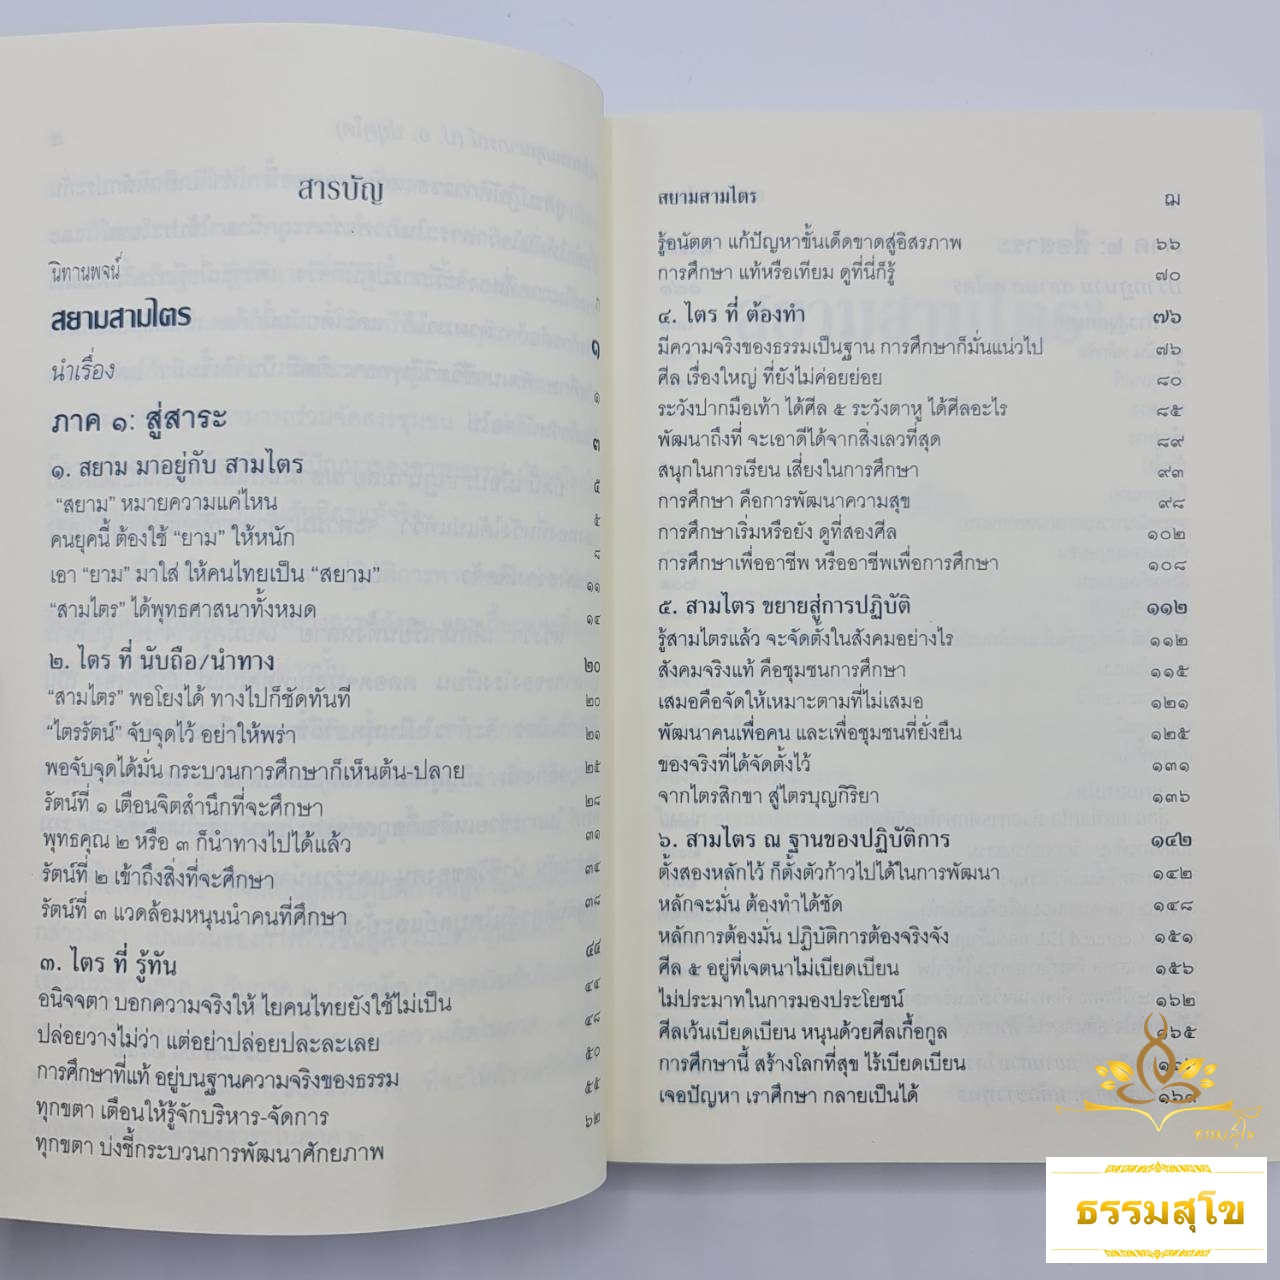 สารบัญ
นิทานพจน์ ก
สยามสามไตร ๑
นำเรื่อง ๑
ภาค ๑: สู่สาระ ๓
๑. สยาม มาอยู่กับ สามไตร ๕
“สยาม” หมายความแค่ไหน ๕
คนยุคนี้ ต้องใช้ “ยาม” ให้หนัก ๘
เอา “ยาม” มาใส่ ให้คนไทยเป็น “สยาม” ๑๑
“สามไตร” ได้พุทธศาสนาทั้งหมด ๑๔
๒. ไตร ที่ นับถือ/นำทาง ๒๐
“สามไตร” พอโยงได้ ทางไปก็ชัดทันที ๒๐
“ไตรรัตน์” จับจุดไว้ อย่าให้พร่า ๒๑
พอจับจุดได้มั่น กระบวนการศึกษาก็เห็นต้น-ปลาย ๒๕
รัตน์ที่ ๑ เตือนจิตสำนึกที่จะศึกษา ๒๘
พุทธคุณ ๒ หรือ ๓ ก็นำทางไปได้แล้ว ๓๑
รัตน์ที่ ๒ เข้าถึงสิ่งที่จะศึกษา ๓๔
รัตน์ที่ ๓ แวดล้อมหนุนนำคนที่ศึกษา ๓๘
๓. ไตร ที่ รู้ทัน ๔๔
อนิจจตา บอกความจริงให้ ไยคนไทยยังใช้ไม่เป็น ๔๔
ปล่อยวางไม่ว่า แต่อย่าปล่อยปละละเลย ๔๘
การศึกษาที่แท้ อยู่บนฐานความจริงของธรรม ๕๐
ทุกขตา เตือนให้รู้จักบริหาร-จัดการ ๕๕
ทุกขตา บ่งชี้กระบวนการพัฒนาศักยภาพ ๖๒
สยามสามไตร ฌ
รู้อนัตตา แก้ปัญหาขั้นเด็ดขาดสู่อิสรภาพ ๖๖
การศึกษา แท้หรือเทียม ดูที่นี่ก็รู้ ๗๐
๔. ไตร ที่ ต้องทำ ๗๖
มีความจริงของธรรมเป็นฐาน การศึกษาก็มั่นแน่วไป ๗๖
ศีล เรื่องใหญ่ ที่ยังไม่ค่อยย่อย ๘๐
ระวังปากมือเท้า ได้ศีล ๕ ระวังตาหู ได้ศีลอะไร ๘๕
พัฒนาถึงที่ จะเอาดีได้จากสิ่งเลวที่สุด ๘๙
สนุกในการเรียน เสี่ยงในการศึกษา ๙๓
การศึกษา คือการพัฒนาความสุข ๙๘
การศึกษาเริ่มหรือยัง ดูที่สองศีล ๑๐๒
การศึกษาเพื่ออาชีพ หรืออาชีพเพื่อการศึกษา ๑๐๘
๕. สามไตร ขยายสู่การปฏิบัติ ๑๑๒
รู้สามไตรแล้ว จะจัดตั้งในสังคมอย่างไร ๑๑๒
สังคมจริงแท้ คือชุมชนการศึกษา ๑๑๕
เสมอคือจัดให้เหมาะตามที่ไม่เสมอ ๑๒๑
พัฒนาคนเพื่อคน และเพื่อชุมชนที่ยั่งยืน ๑๒๕
ของจริงที่ได้จัดตั้งไว้ ๑๓๑
จากไตรสิกขา สู่ไตรบุญกิริยา ๑๓๖
๖. สามไตร ณ ฐานของปฏิบัติการ ๑๔๒
ตั้งสองหลักไว้ ก็ตั้งตัวก้าวไปได้ในการพัฒนา ๑๔๒
หลักจะมั่น ต้องทำได้ชัด ๑๔๘
หลักการต้องมั่น ปฏิบัติการต้องจริงจัง ๑๕๑
ศีล ๕ อยู่ที่เจตนาไม่เบียดเบียน ๑๕๖
ไม่ประมาทในการมองประโยชน์ ๑๖๒
ศีลเว้นเบียดเบียน หนุนด้วยศีลเกื้อกูล ๑๖๕
การศึกษานี้ สร้างโลกที่สุข ไร้เบียดเบียน
เจอปัญหา เราศึกษา กลายเป็นได้ ๑๖๙
ธรรมสุโข
ธรรมสุโข